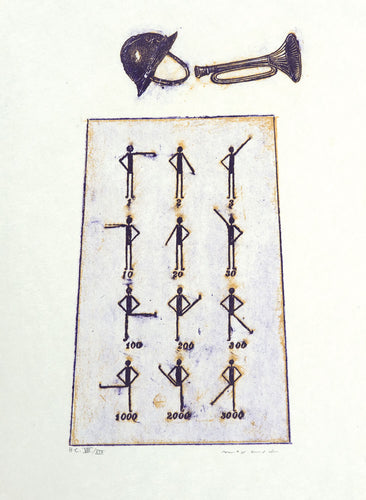 1 2 3
10 20 30
100 200 300
1000 2000 3000
H.C.